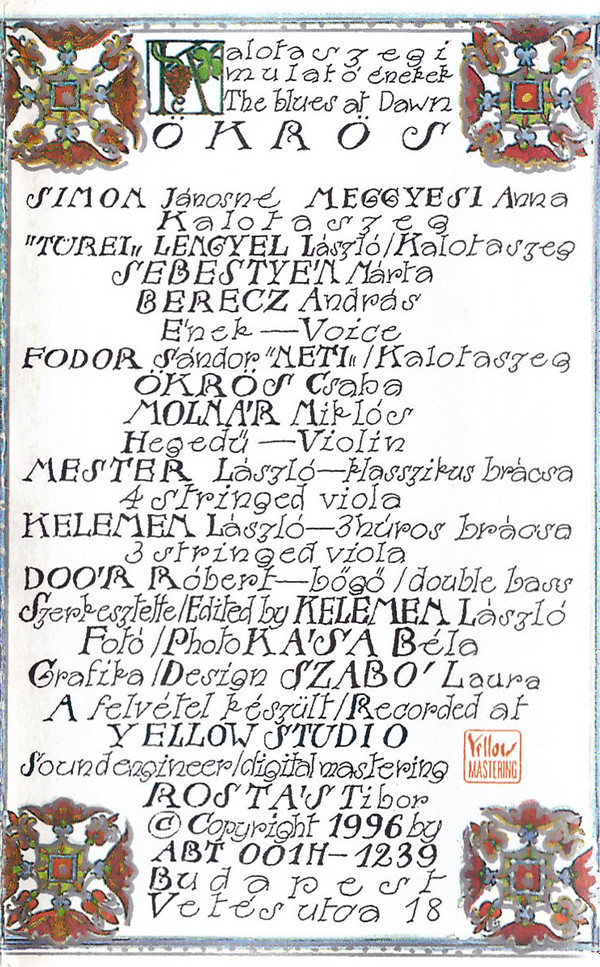 Kalotaszegi
mulató énekek
The blues at Dawn
ÖKRÖS
SIMON Jánosné MEGGYESI Anna
Kalotaszeg
"TÜREI" LENGYEL László/Kalotaszeg
SEBESTYÉN Márta
BERECZ András
Ének—Voice
FODOR Sándor "NETI"/Kalotaszeg
ÖKRÖS Csaba
MOLNÁR Miklós
Hegedű—Violin
MESTER László—klasszikus brácsa
4 stringed viola
KELEMEN László—3húros brácsa
3 stringed viola
DOÓR Róbert—bőgő/double bass
Szerkesztette/Edited by KELEMEN László
Fotó/Photo KÁSA Béla
Grafika/Design SZABÓ Laura
A felvétel készült/Recorded at
YELLOW STUDIO
Yellow
MASTERING
Soundengineer/digital mastering
ROSTÁS Tibor
© Copyright 1996 by
ABT 001H-1239
Budapest
Vetés utca 18